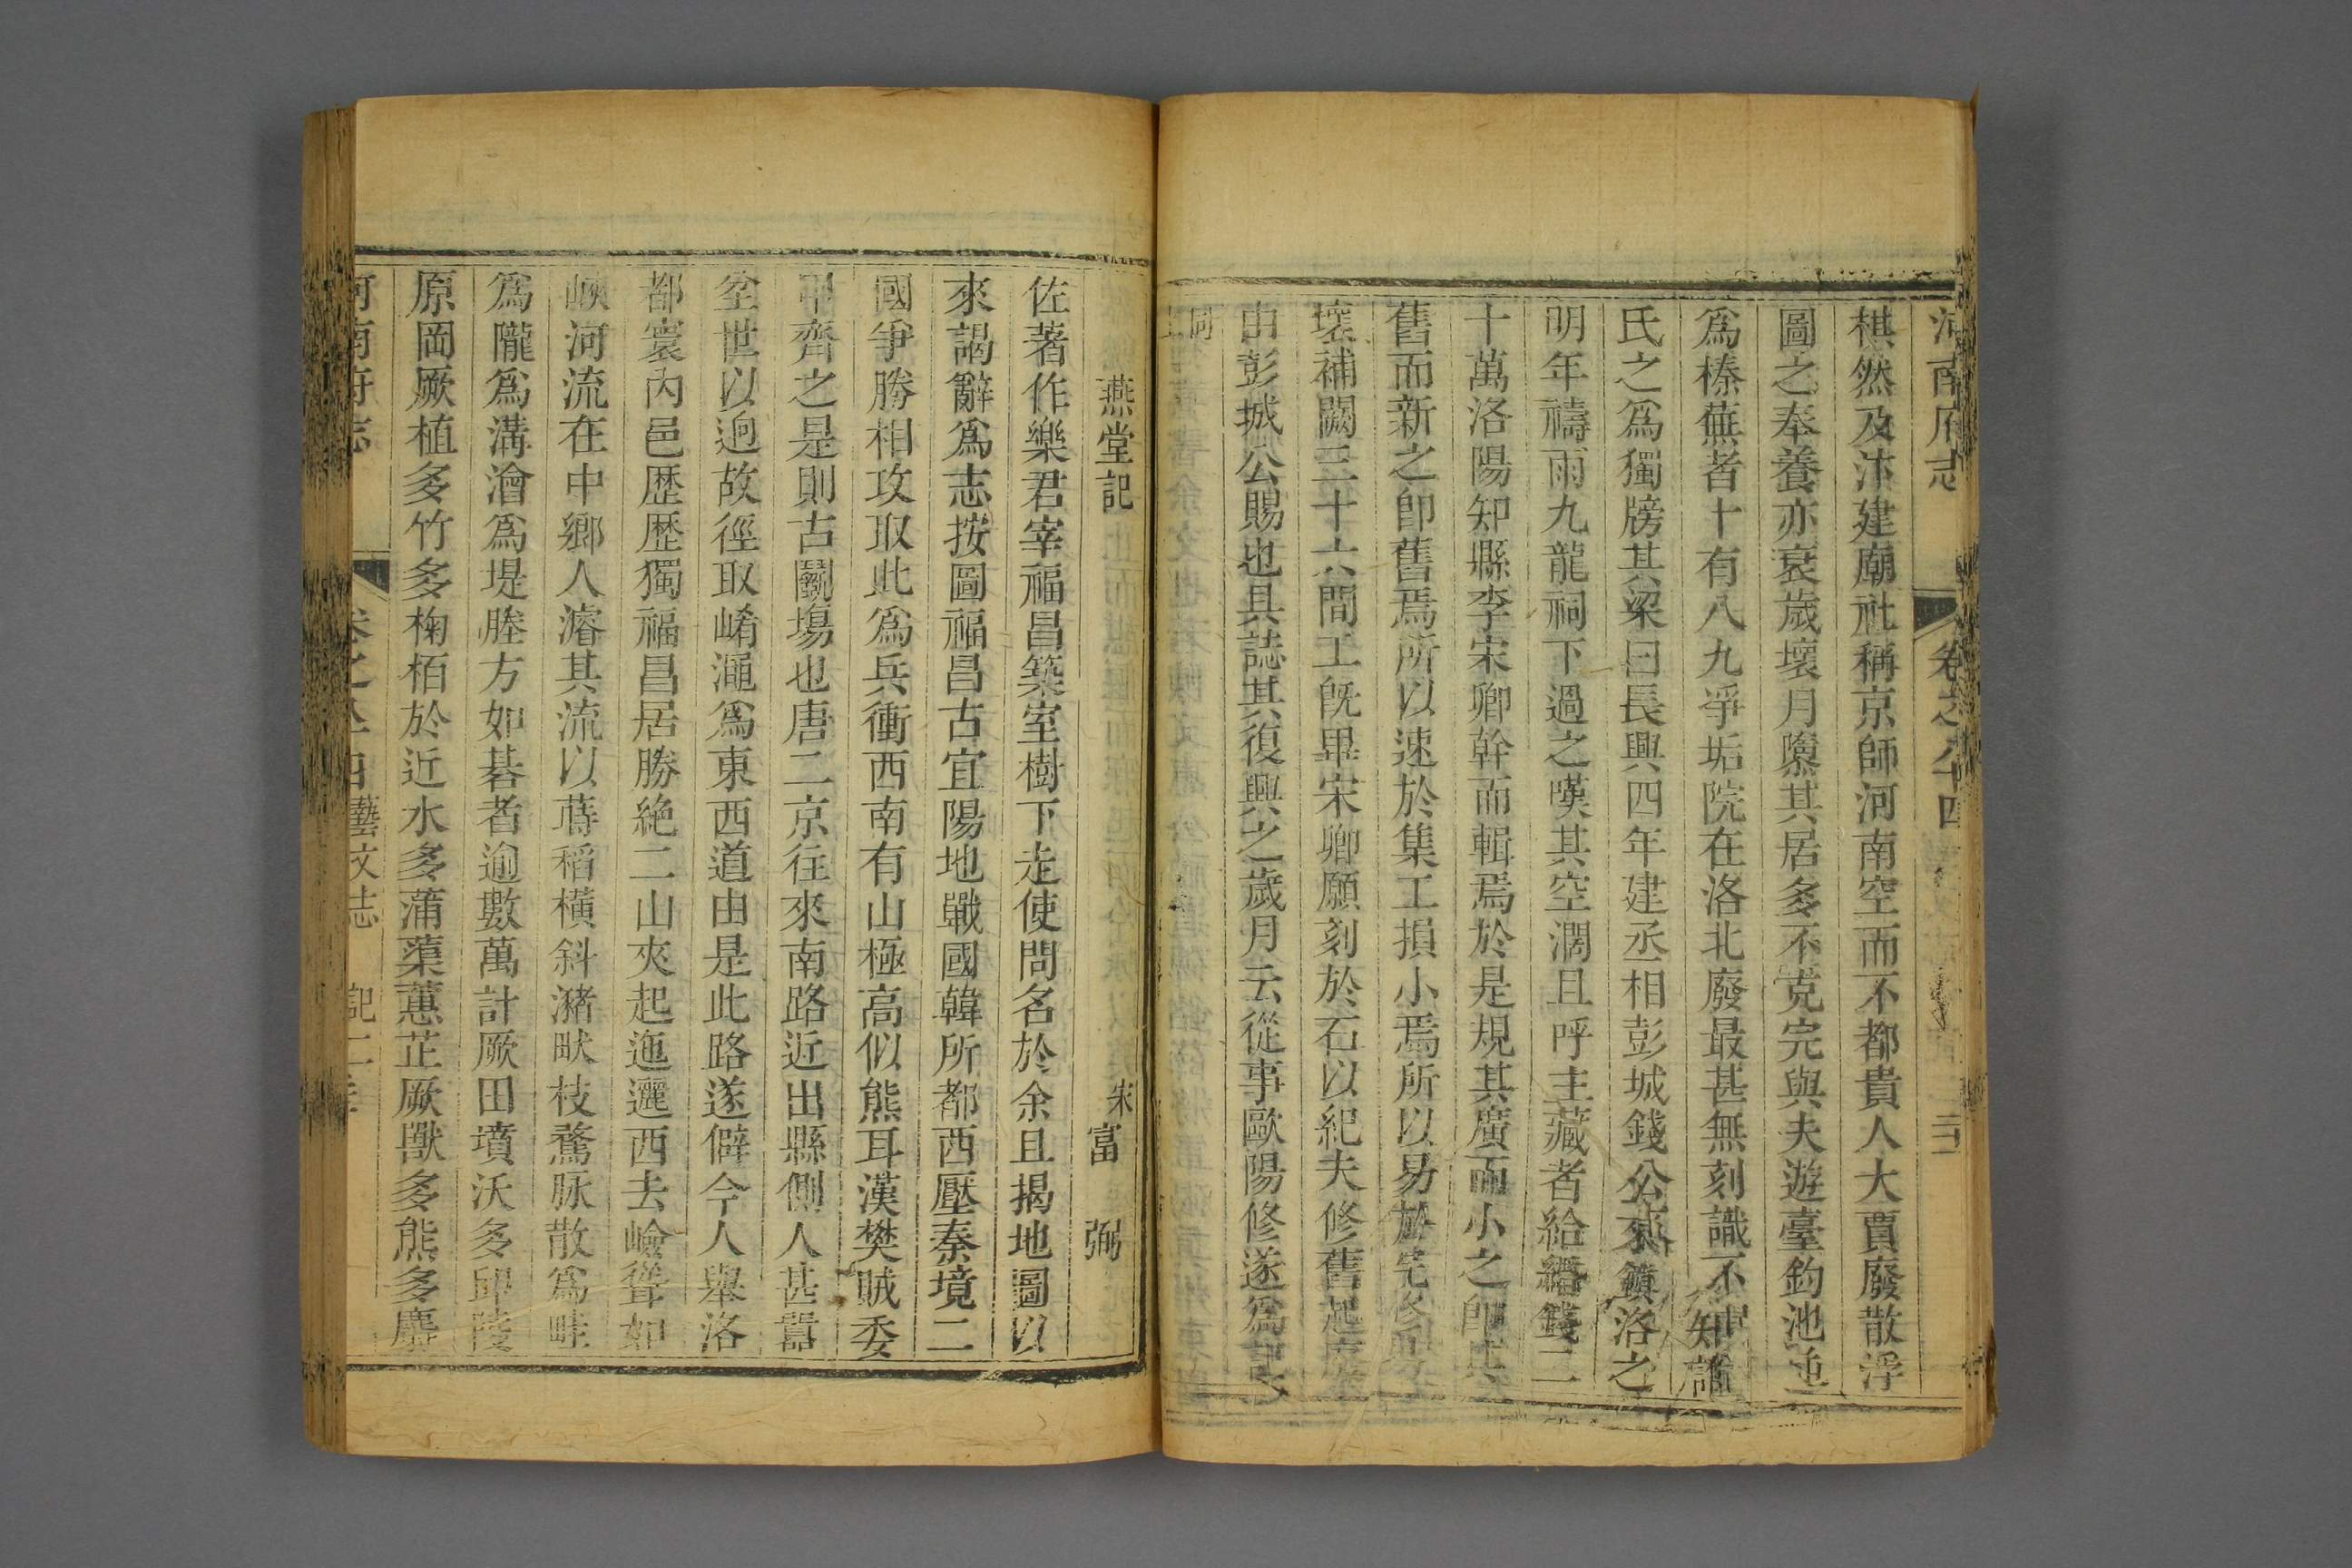 河南府志 卷之八十四 三十
棋然及汴建廟社稱京師河南空而不都貴人大賈廢散浮
圖之奉養亦衰歲壞月隳其居多不克完與夫遊臺釣池並
爲榛蕪者十有八九爭垢院在洛北廢最甚無刻識不知誰
氏之爲獨牓其梁曰長興四年建丞相彭城錢公來鎭洛之
明年禱雨九龍祠下過之嘆其空濶且呼主藏者給緡錢二
十萬洛陽知縣李宋卿幹而輯焉於是規其廣而小之卽其
舊而新之卽舊焉所以速於集工損小焉所以易於完修
壞補闕三十六間工旣畢宋卿願刻於石以紀夫修舊起廢
由彭城公賜也且誌其復興之歲月云從事歐陽修遂爲記
燕堂記 宋富 弼
佐著作樂君宰福昌築室樹下走使問名於余且揭地圖以
來謁辭爲志按圖福昌古宜陽地戰國韓所都西壓秦境二
國爭勝相攻取此爲兵衝西南有山極高似熊耳漢樊賊委
甲齊之是則古鬭塲也唐二京往來南路近出縣側人甚囂
坌世以逈故徑取崤澠爲東西道由是此路遂僻今人舉洛
都寰內邑歷歷獨福昌居勝絶二山夾起迤邐西去嶮聳如
峽河流在中鄉人濬其流以蒔稻橫斜瀦畎枝騖脉散爲畦
爲隴爲溝澮爲堤塍方如碁者逾數萬計厥田墳沃多邱陵
原岡厥植多竹多椈栢於近水多蒲蕖蕙芷厥獸多熊多麖
河南府志 卷之八十四 藝文志 記二